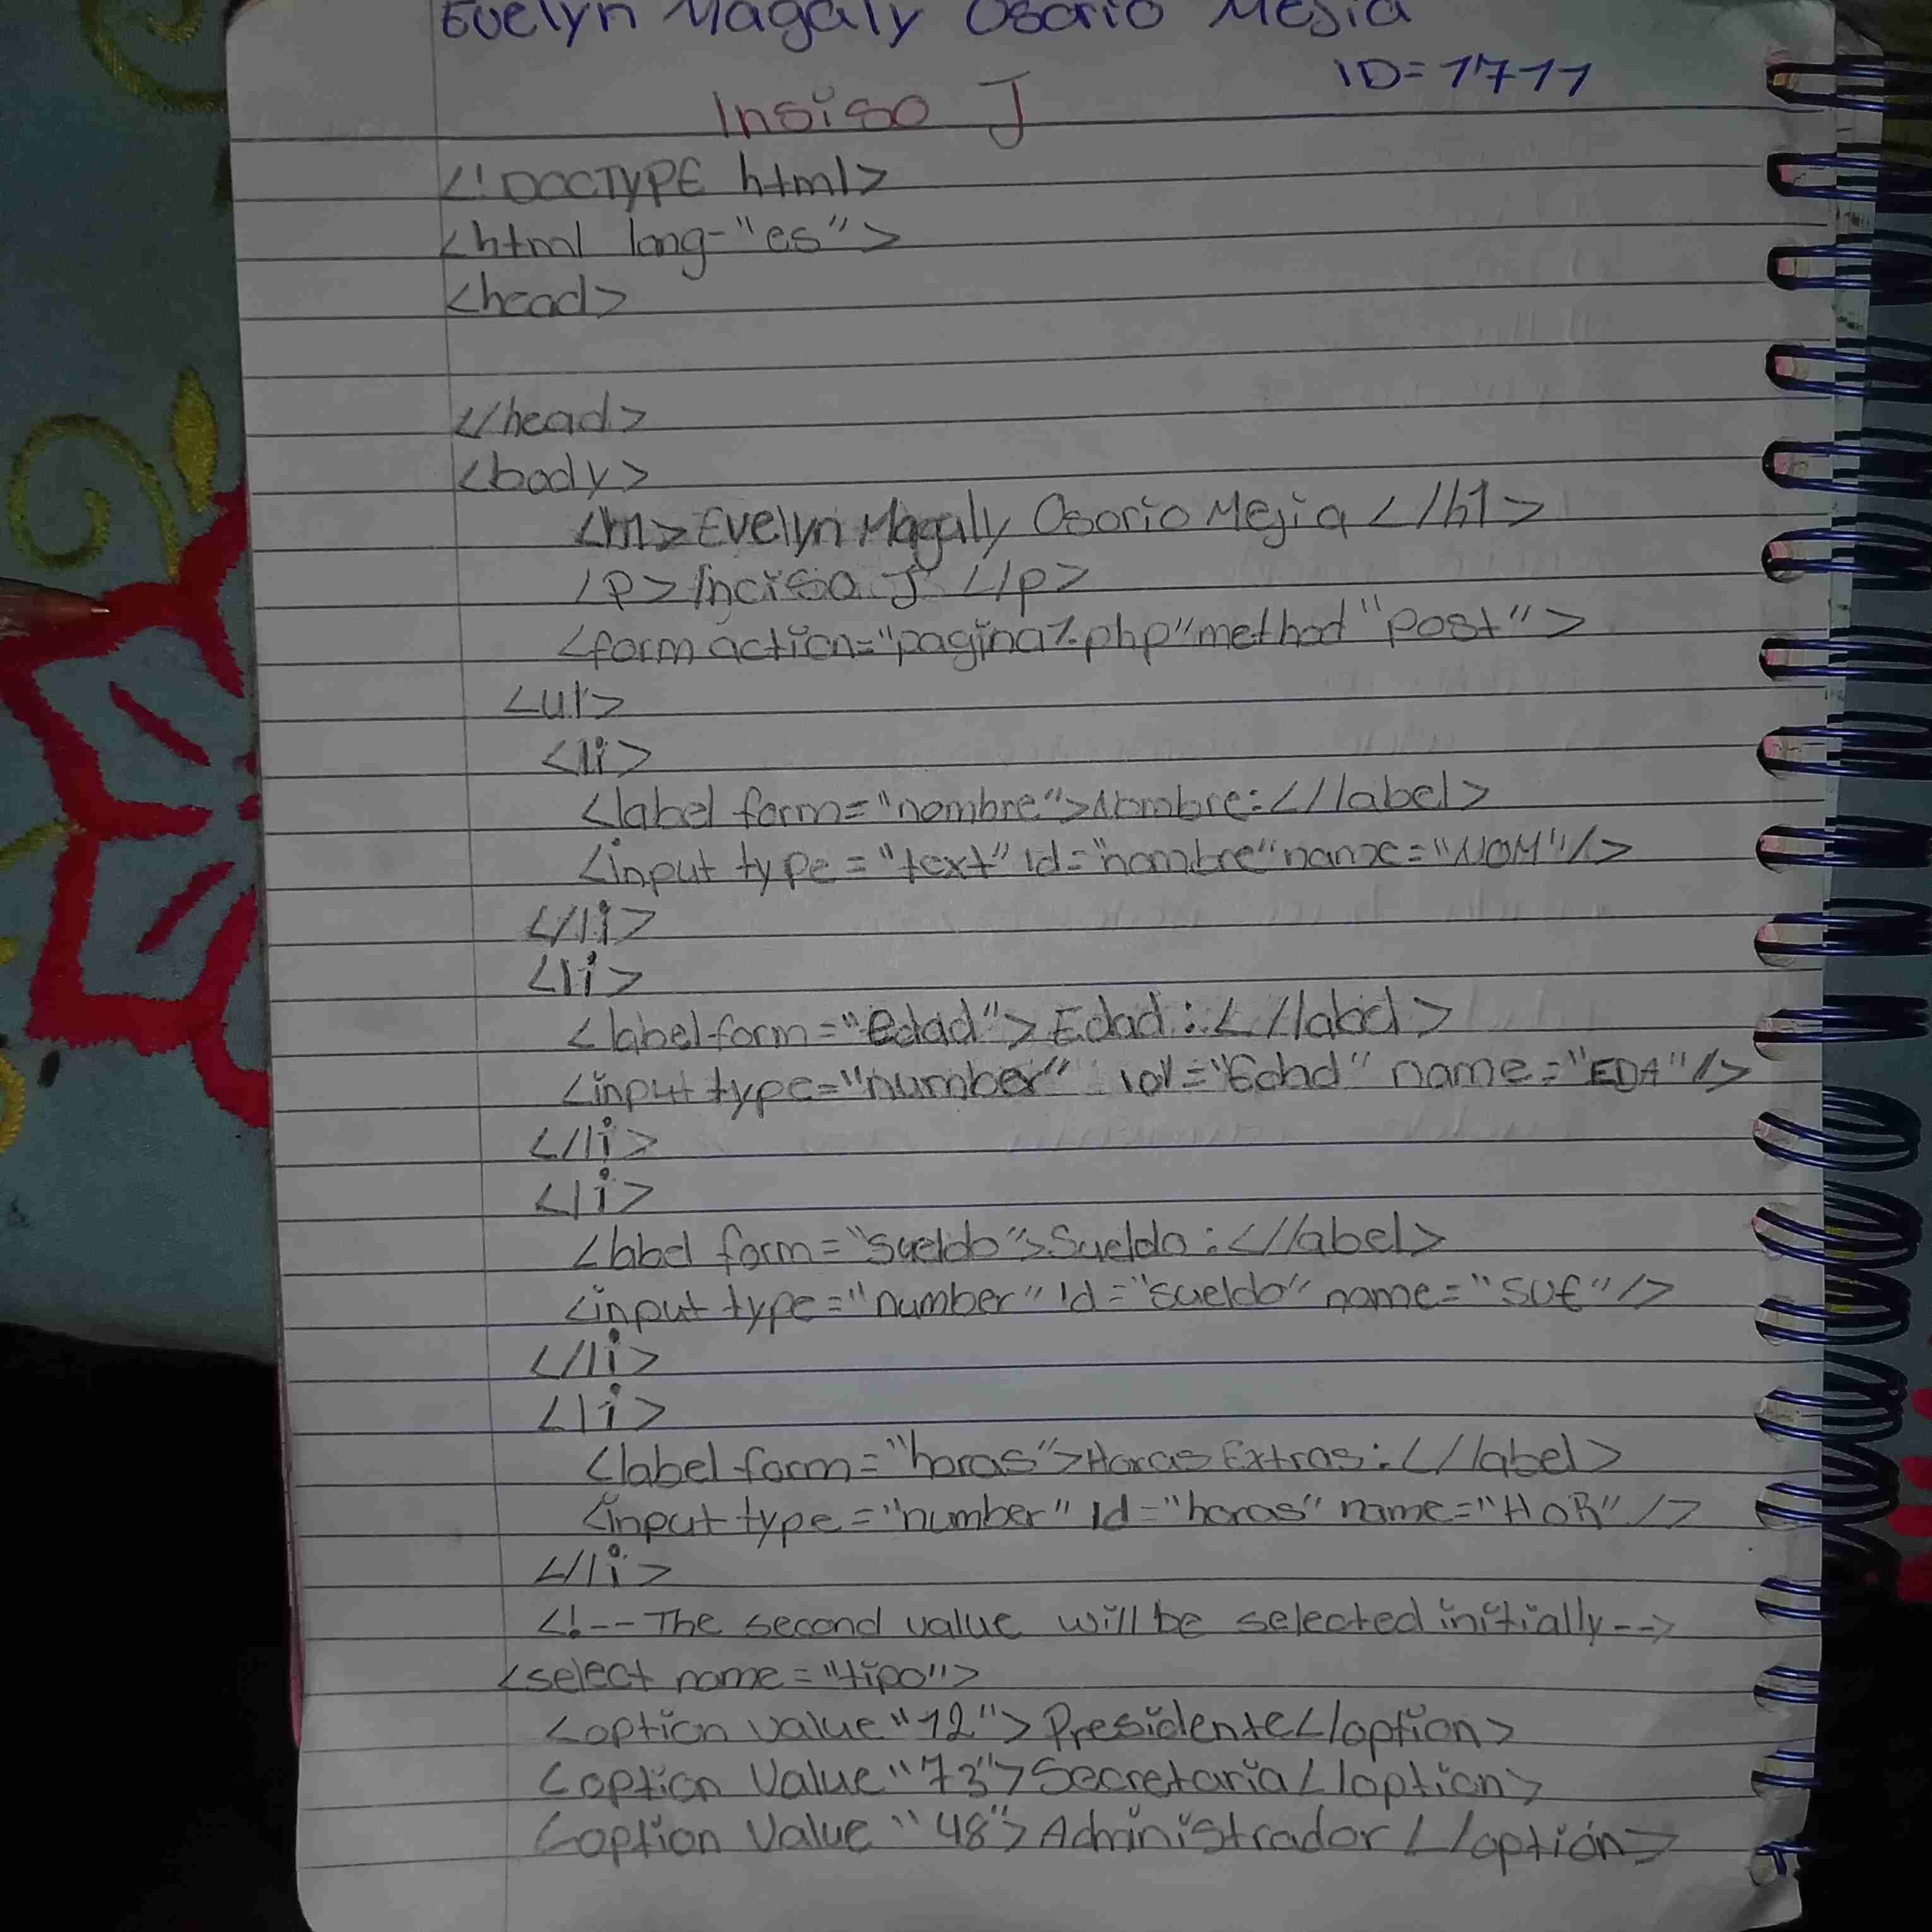 Evelyn Magaly Osorio Mejia
ID=1711
Insiso J
<!DOCTYPE html>
<html lang="es">
<head>
</head>
<body>
<h1>Evelyn Magaly Osorio Mejia </h1>
<p>Inciso J </p>
<form action="pagina1.php"method "post">
<ul>
<li>
<label form="nombre">Nombre:</label>
<input type="text" id="nombre"name="NOM"/>
</li>
<li>
<label form="edad">Edad:</label>
<input type="number" id="Edad" name="EDA"/>
</li>
<li>
<label form="sueldo">Sueldo:</label>
<input type="number" id="sueldo" name="SUE"/>
</li>
<li>
<label form="horas">Horas Extras:</label>
<input type="number" id="horas" name="HOR"/>
</li>
<!--The second value will be selected initially-->
<select name="tipo">
<option value"12">Presidente</option>
<option Value"73">Secretaria</option>
<option Value"48">Administrador</option>